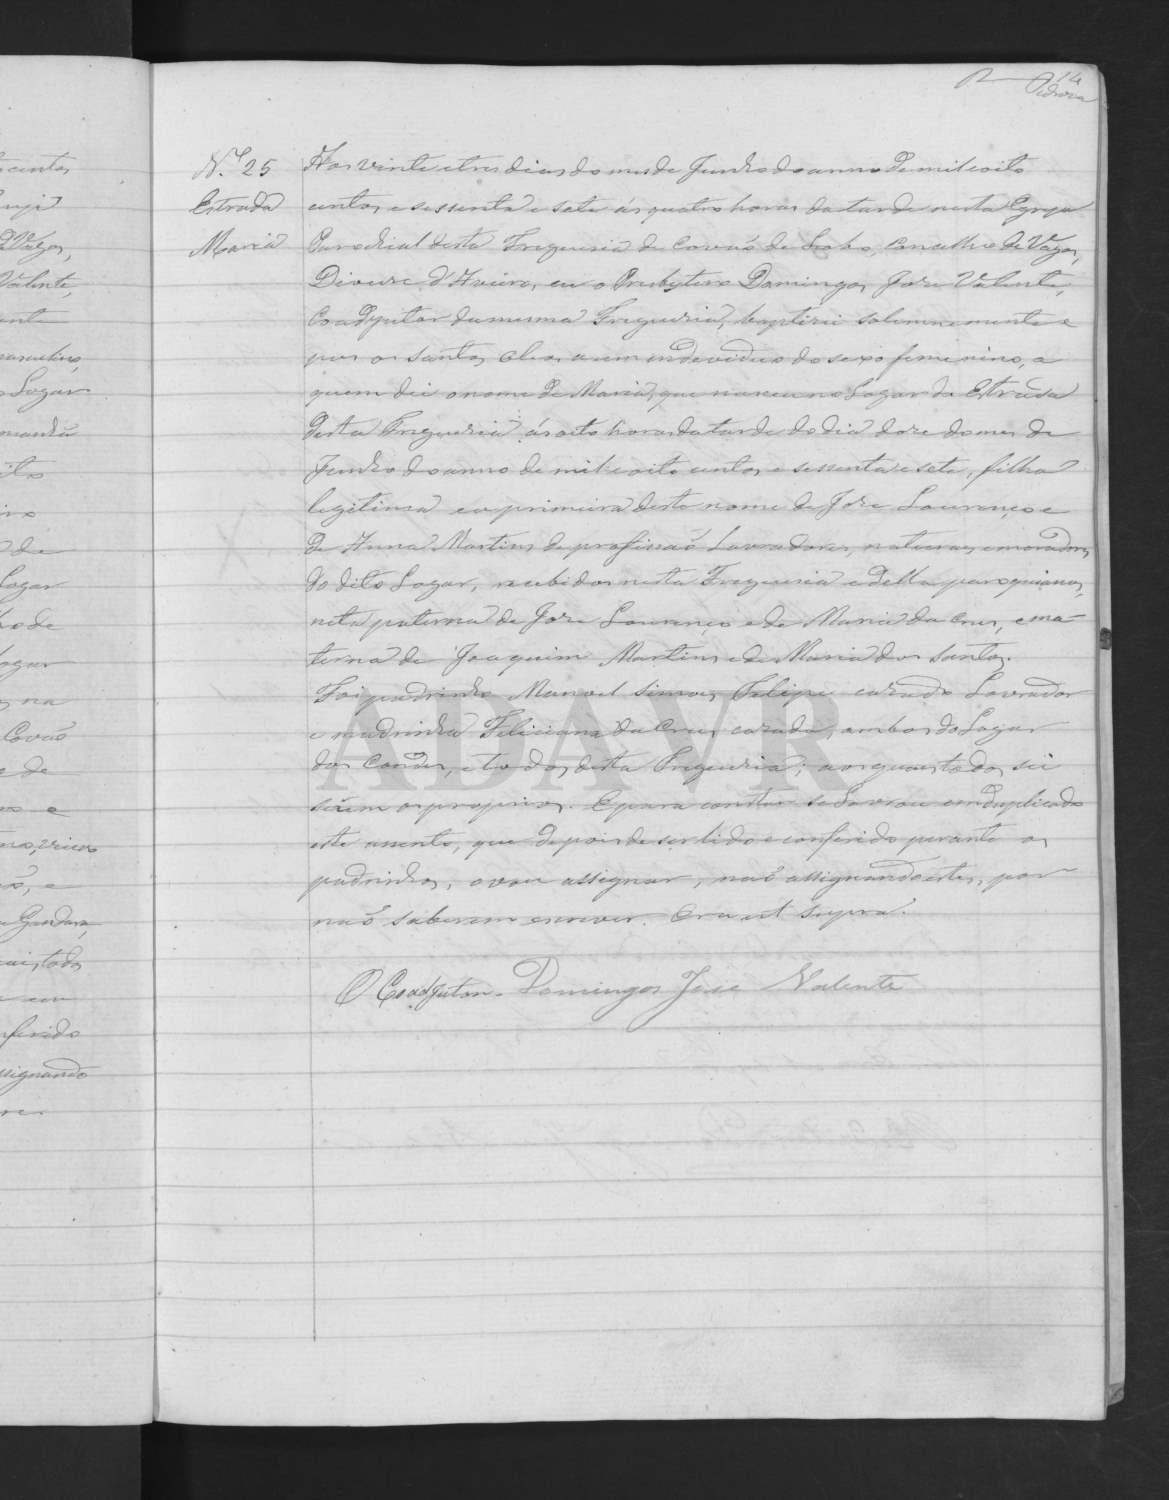 14
N.º 25
Estrada
Maria
Aos vinte e tres dias do mes de Junho do anno de mil e oito
centos e sessenta e sete ás quatro horas da tarde nesta Egreja
Parochial desta Freguesia de Covaõ do Lobo, Concelho de Vagos,
Diocese d'Aveiro, eu o Presbytero Domingos Jose Valente,
Coadjutor da mesma Freguesia, baptisei solemnemente e
pus os santos oleos a um individuo do sexo femenino, a
quem dei o nome de Maria, que nasceu no Logar da Estrada
desta Freguesia ás oito horas da tarde do dia doze do mes de
Junho do anno de mil e oito centos e sessenta e sete, filha
legitima e a primeira deste nome de Jose Lourenço e
de Anna Martins de profissaõ Lavradores, naturaes e moradores,
do dito Logar, recebidos nesta Freguesia e della paroquianos,
neta paterna de Jose Lourenço e de Maria da Crus, e ma-
terna de Joaquim Martins e de Maria dos Santos.
Foi padrinho Manoel Simoes Felipe casado Lavrador
e madrinha Feliciana da Crus casada, ambos do Logar
dos Condes, e todos desta Freguesia; aos quaes todos sei
serem os proprios. E para constar se lavrou em duplicado
este assento, que depois de ser lido e conferido perante os
padrinhos, o vou assignar, naõ assignando estes, por
naõ saberem escrever. Era ut supra.
O Coadjutor Domingos José Valente
ADAVR
centos
Vagos,
Valente,
masculino,
Logar
manhã
de
Logar
de
Logar
na
Covaõ
e de
e
Gandara,
todos
conferido
assignando